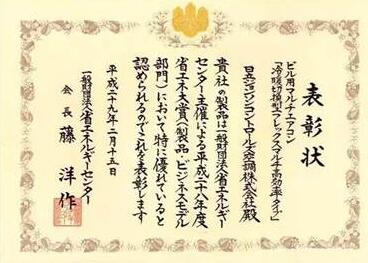 表彰状
ビル用マルチエアコン
「冷暖切換型フレックスマルチ高効率タイプ」
日立ジョンソンコントロールズ空調株式会社殿
貴社の製品は一般財団法人省エネルギー
センター主催による平成二十八年度
省エネ大賞(製品・ビジネスモデル
部門)において特に優れていると
認められるのでこれを表彰します
平成二十九年二月十五日
一般財団法人省エネルギーセンター
会長 藤洋作